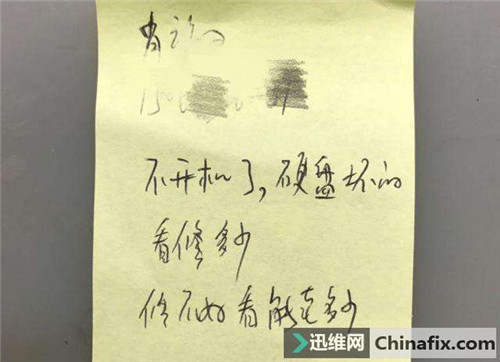 不开机了，硬盘坏的
看修多少
修不好看能卖多少
迅维网 Chinafix.com